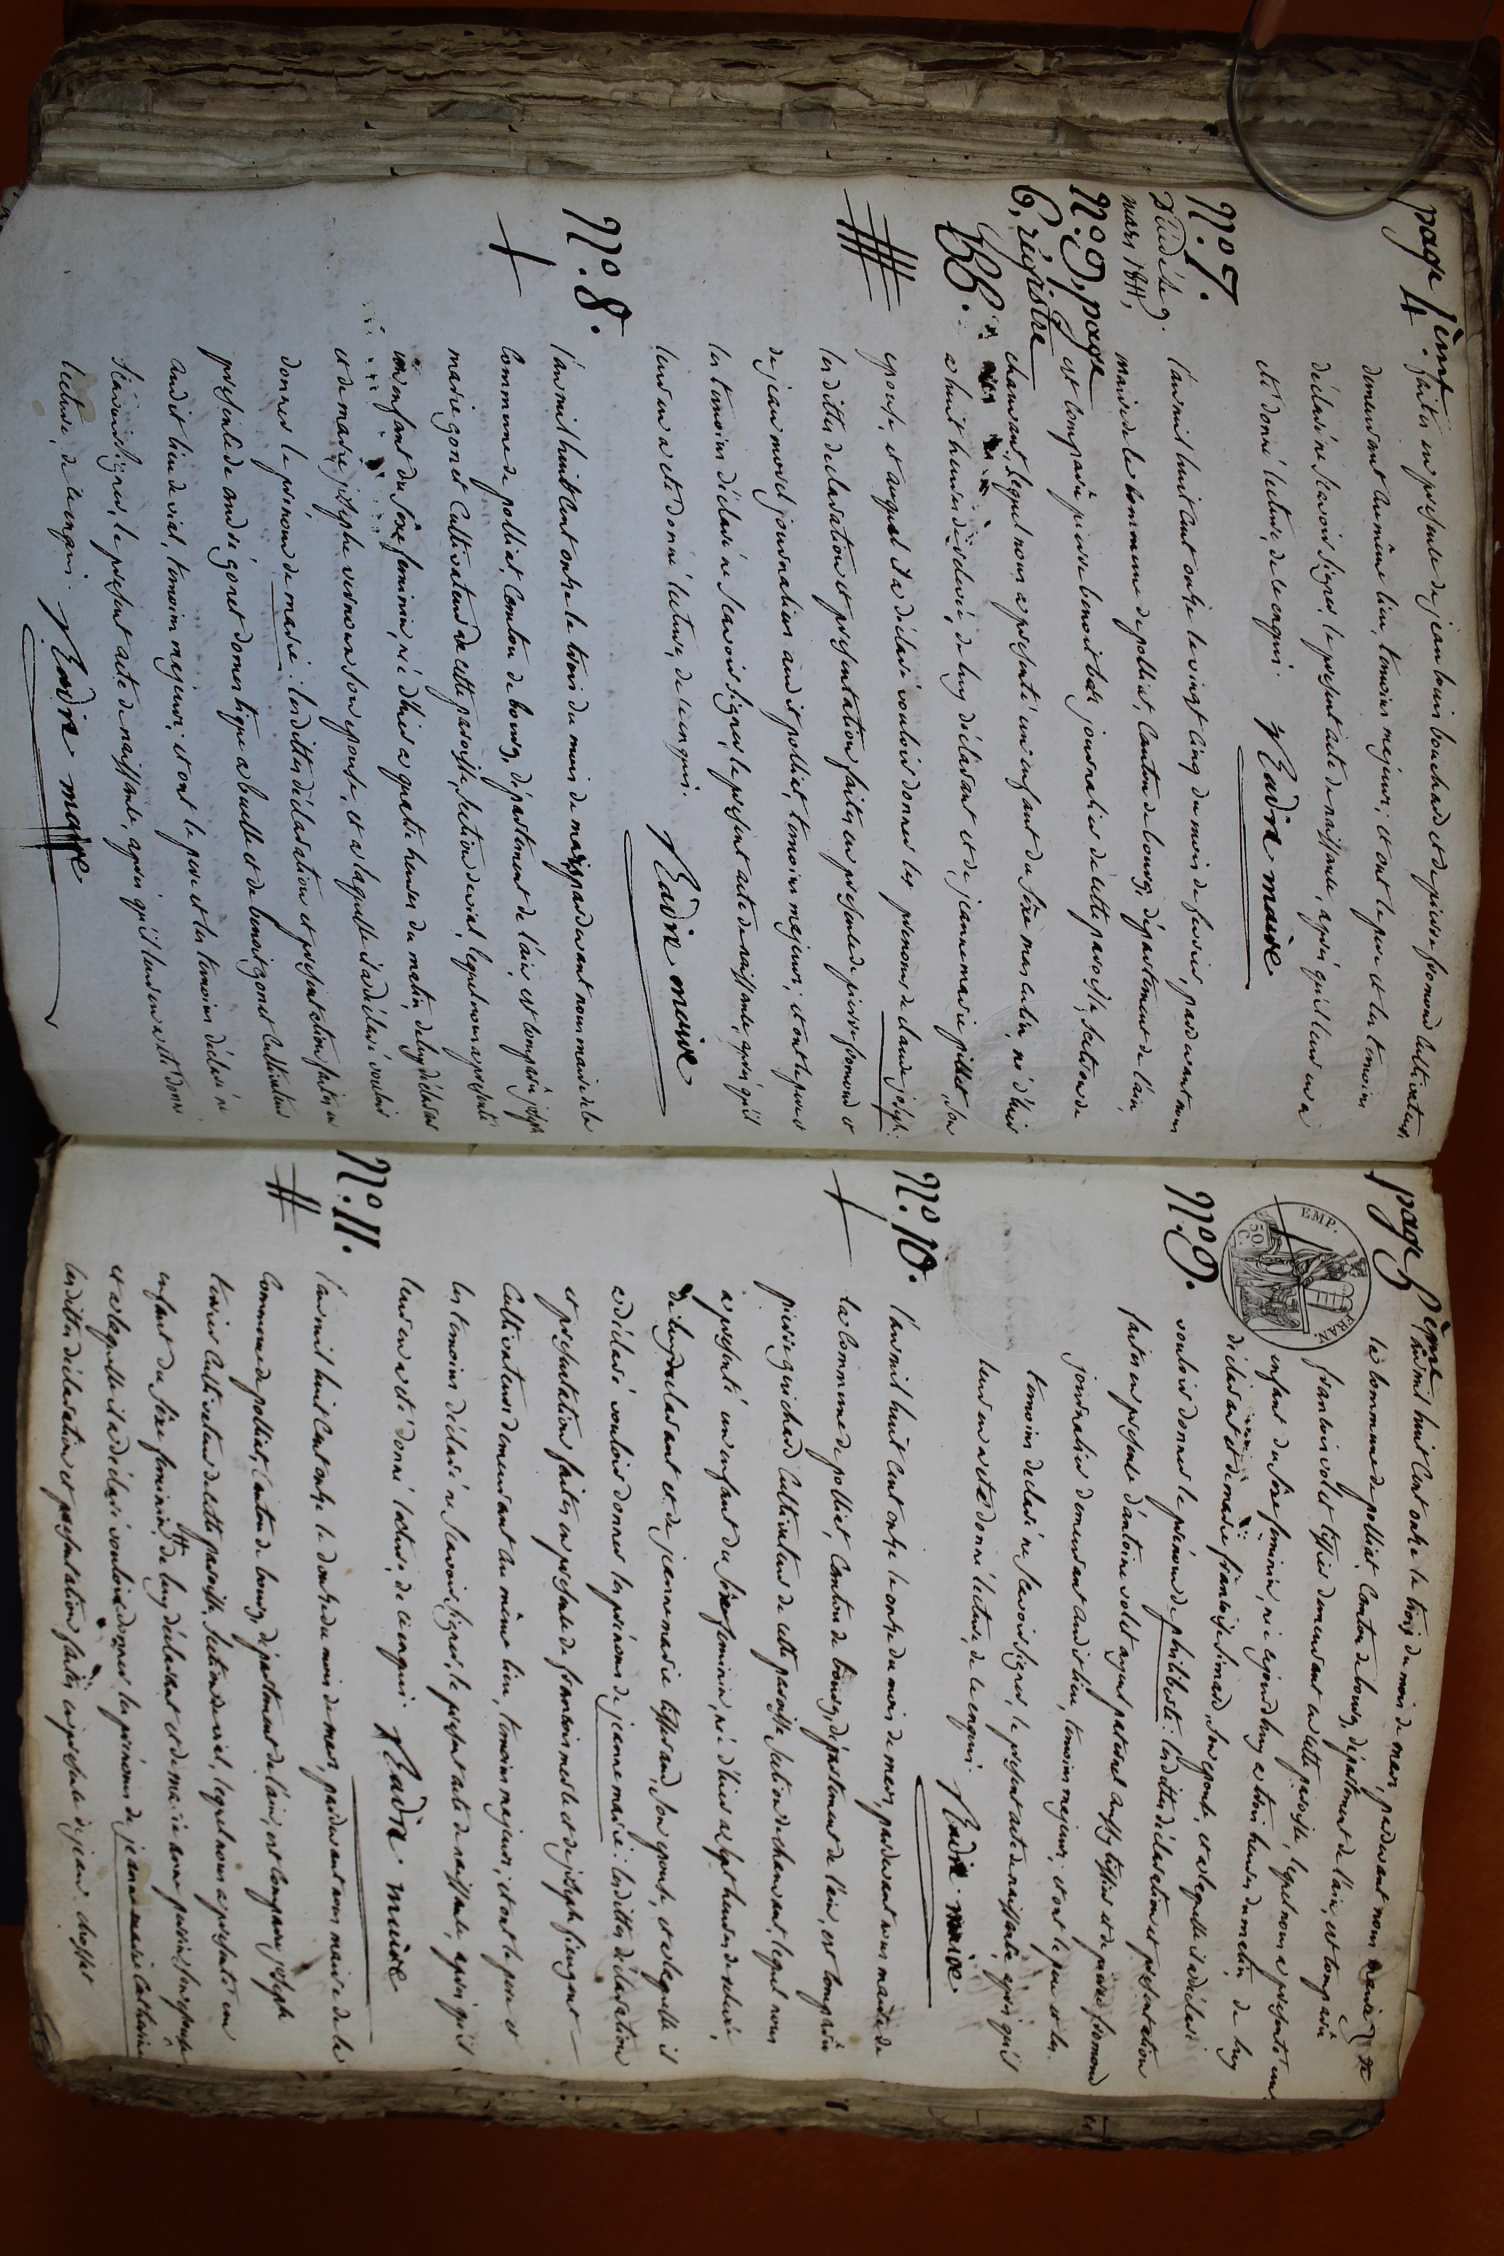 page 4ème
faites en présence de jean louis bouchard et de pierre fromond cultivateurs,
demeurant au même lieu, temoins majeurs; et ont le pere et les temoins
déclaré ne scavoir signer le présent acte de naissance, après qu'il leur en a
été donné lecture, de ce enquis. Nadre maire
N.º 7.
Décédé le 9.
mars 1811,
N.º 9, page
6, régistre
BB.
l'an mil huit cent onze le vingt cinq du mois de fevrier, pardevant nous
maire de la commune de polliat, canton de bourg, département de l'ain,
est comparû pierre benoit journalier de cette paroisse, section de
chanvant, lequel nous a présenté un enfant du sèxe masculin, né d'hier
a huit heures de relevé, de luy déclarant et de jeanne marie pillet, son
épouse, et auquel il a déclaré vouloir donner les prenoms de claude joseph:
les dittes declaration et présentation faites en présence de pierre fromond et
de jean morel journaliers audit polliat, temoins majeurs; et ont le pere et
les temoins déclaré ne scavoir signer le présent acte de naissance, après qu'il
leur en a été donné lecture, de ce enquis. Nadre maire
N.º 8.
l'an mil huit cent onze le trois du mois de mars pardevant nous maire de la
commune de polliat, canton de bourg, département de l'ain, est comparû joseph
marie gonet cultivateur de cette paroisse, section de vial, lequel nous a présenté
un enfant du sèxe feminin, né d'hier a quatre heures du matin, de luy déclarant
et de marie josephe vernoux son épouse, et a laquelle il a déclaré vouloir
donner le prenom de marie: les dittes déclaration et présentation faites en
présence de andré gonet domestique a buelle et de benoit gonet cultivateur
audit lieu de vial, temoins majeurs; et ont le pere et les temoins déclaré ne
scavoir signer, le présent acte de naissance, après qu'il leur en a été donné
lecture, de ce enquis. Nadre maire
page 5ème
EMP. FRAN
50. C.
N.º 9.
l'an mil huit cent onze le trois du mois de mars, pardevant nous maire de
la commune de polliat, canton de bourg, département de l'ain, est comparû
francois volet tissier demeurant en cette paroisse, lequel nous a présenté un
enfant du sèxe feminin, né aujourd'huy a trois heures du matin, de luy
déclarant et de marie françoise simard, son épouse, et a laquelle il a déclaré
vouloir donner le prénom de philiberte: les dittes déclaration et présentation
faites en présence d'antoine volet ayeul paternel aussy tissier et de pierre fromond
journalier demeurant audit lieu, temoins majeurs; et ont le pere et les
temoins déclaré ne scavoir signer, le présent acte de naissance, après qu'il
leur en a été donné lecture, de ce enquis. Nadre maire
N.º 10.
l'an mil huit cent onze le onze du mois de mars, pardevant nous maire de
la commune de polliat, canton de bourg, département de l'ain, est comparû
pierre guichard cultivateur de cette paroisse section de chanvant, lequel nous
a présenté un enfant du sèxe feminin, né d'hier a sept heures de relevée,
de luy declarant et de jeanne marie tisserand, son épouse, et a laquelle il
a déclaré vouloir donner les prénoms de jeanne marie: les dittes déclaration
et présentation faites en présence de francois merle et de joseph
cultivateurs demeurant au même lieu, temoins majeurs; et ont le pere et
les temoins déclaré ne scavoir signer, le présent acte de naissance, après qu'il
leur en a été donné lecture, de ce enquis. Nadre maire
N.º 11.
l'an mil huit cent onze le douze du mois de mars, pardevant nous maire de la
commune de polliat, canton de bourg, département de l'ain, est comparu joseph
cultivateur de cette paroisse, section de vial, lequel nous a présenté un
enfant du sèxe feminin, de luy déclarant et de marie anne son épouse
et a laquelle il a déclaré vouloir donner les prénoms de jeanne marie Catherine
les dittes déclaration et présentation faites en présence de jean